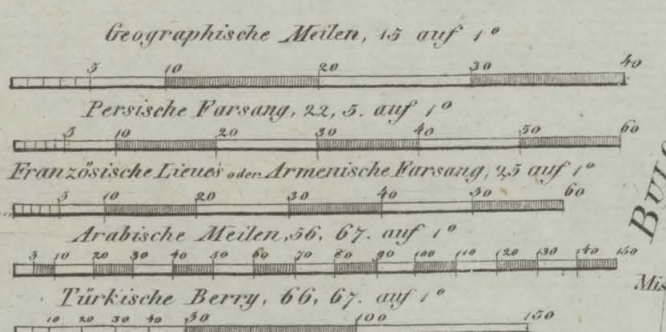 Geographische Meilen, 15 auf 1°
5 10 20 30 40
Persische Farsang, 22, 5. auf 1°
5 10 20 30 40 50 60
Französische Lieues oder Armenische Farsang, 25 auf 1°
5 10 20 30 40 50 60
Arabische Meilen, 56, 67. auf 1°
5 10 20 30 40 50 60 70 80 90 100 110 120 130 140 150
Türkische Berry, 66, 67. auf 1°
10 20 30 40 50 100 150
BULG
Mis